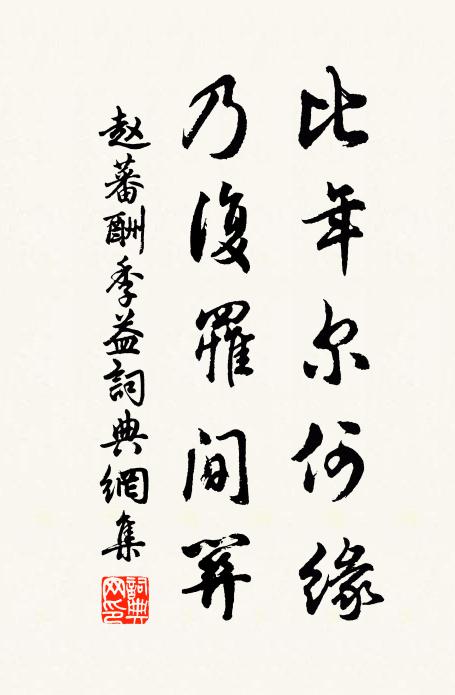 比年尔何缘
乃復罹间关
赵蕃酬季益詞典網集
詞典网印